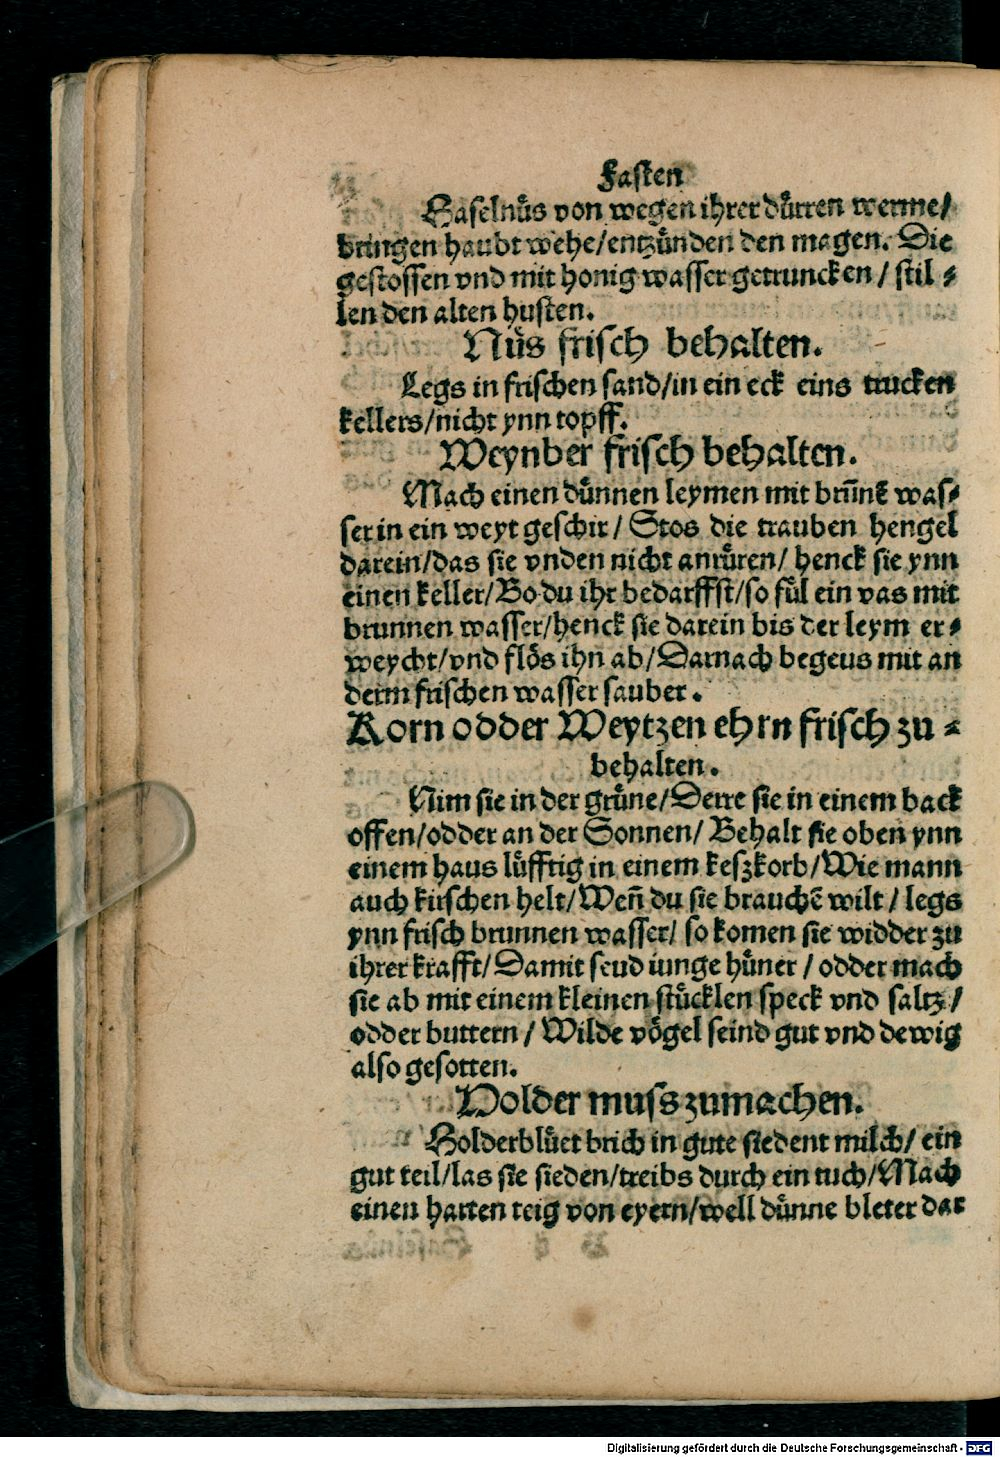 Fasten
Haselnüs von wegen ihrer dürren werme/
bringen haubt wehe/entzünden den magen. Die
gestossen vnd mit honig wasser getruncken / stil⸗
len den alten husten.
Nüs frisch behalten.
Legs in frischen sand/in ein eck eins trucken
kellers/nicht ynn topff.
Weynber frisch behalten.
Mach einen dünnen leymen mit brūnē was⸗
ser in ein weyt geschir / Stos die trauben hengel
darein/das sie vnden nicht anrüren/ henck sie ynn
einen keller/Bo du ihr bedarffst/so fül ein vas mit
brunnen wasser/henck sie darein bis der leym er⸗
weycht/vnd flös ihn ab/Darnach begeus mit an
derm frischen wasser sauber .
Korn odder Weytzen ehrn frisch zu ⸗
behalten .
Nim sie in der grüne/Derre sie in einem back
offen/odder an der Sonnen/ Behalt sie oben ynn
einem haus lüfftig in einem keszkorb/Wie mann
auch kirschen helt/Weñ du sie brauchē wilt / legs
ynn frisch brunnen wasser/ so komen sie widder zu
ihrer krafft/Damit seud iunge hüner / odder mach
sie ab mit einem kleinen stücklen speck vnd saltz /
odder buttern / Wilde vögel seind gut vnd dewig
also gesotten.
Holder muss zumachen.
Holderblüet brich in gute siedent milch/ ein
gut teil/las sie sieden/treibs durch ein tuch/Mach
einen harten teig von eyern/well dünne bleter dar
Digitalisierung gefördert durch die Deutsche Forschungsgemeinschaft - DFG